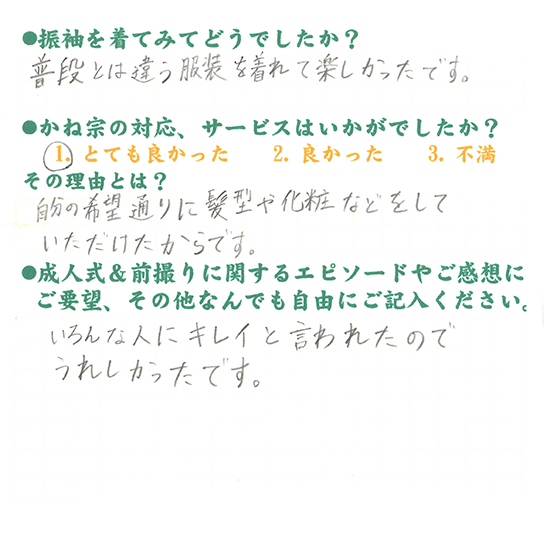 ●振袖を着てみてどうでしたか？
普段とは違う服装を着れて楽しかったです。
●かね宗の対応、サービスはいかがでしたか？
1. とても良かった 2. 良かった 3. 不満
その理由とは？
自分の希望通りに髪型や化粧などをして
いただけたからです。
●成人式&前撮りに関するエピソードやご感想に
ご要望、その他なんでも自由にご記入ください。
いろんな人にキレイと言われたので
うれしかったです。